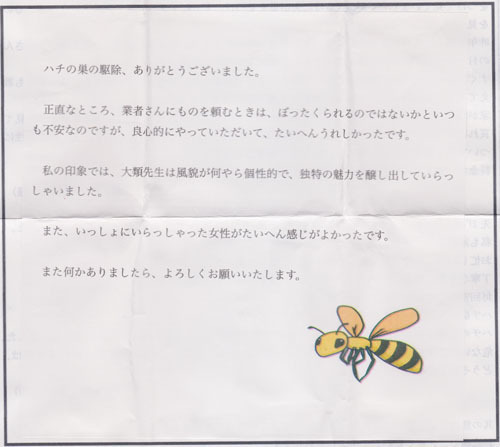 ハチの巣の駆除、ありがとうございました。
正直なところ、業者さんにものを頼むときは、ぼったくられるのではないかといつ
も不安なのですが、良心的にやっていただいて、たいへんうれしかったです。
私の印象では、大類先生は風貌が何やら個性的で、独特の魅力を醸し出していらっ
しゃいました。
また、いっしょにいらっしゃった女性がたいへん感じがよかったです。
また何かありましたら、よろしくお願いいたします。